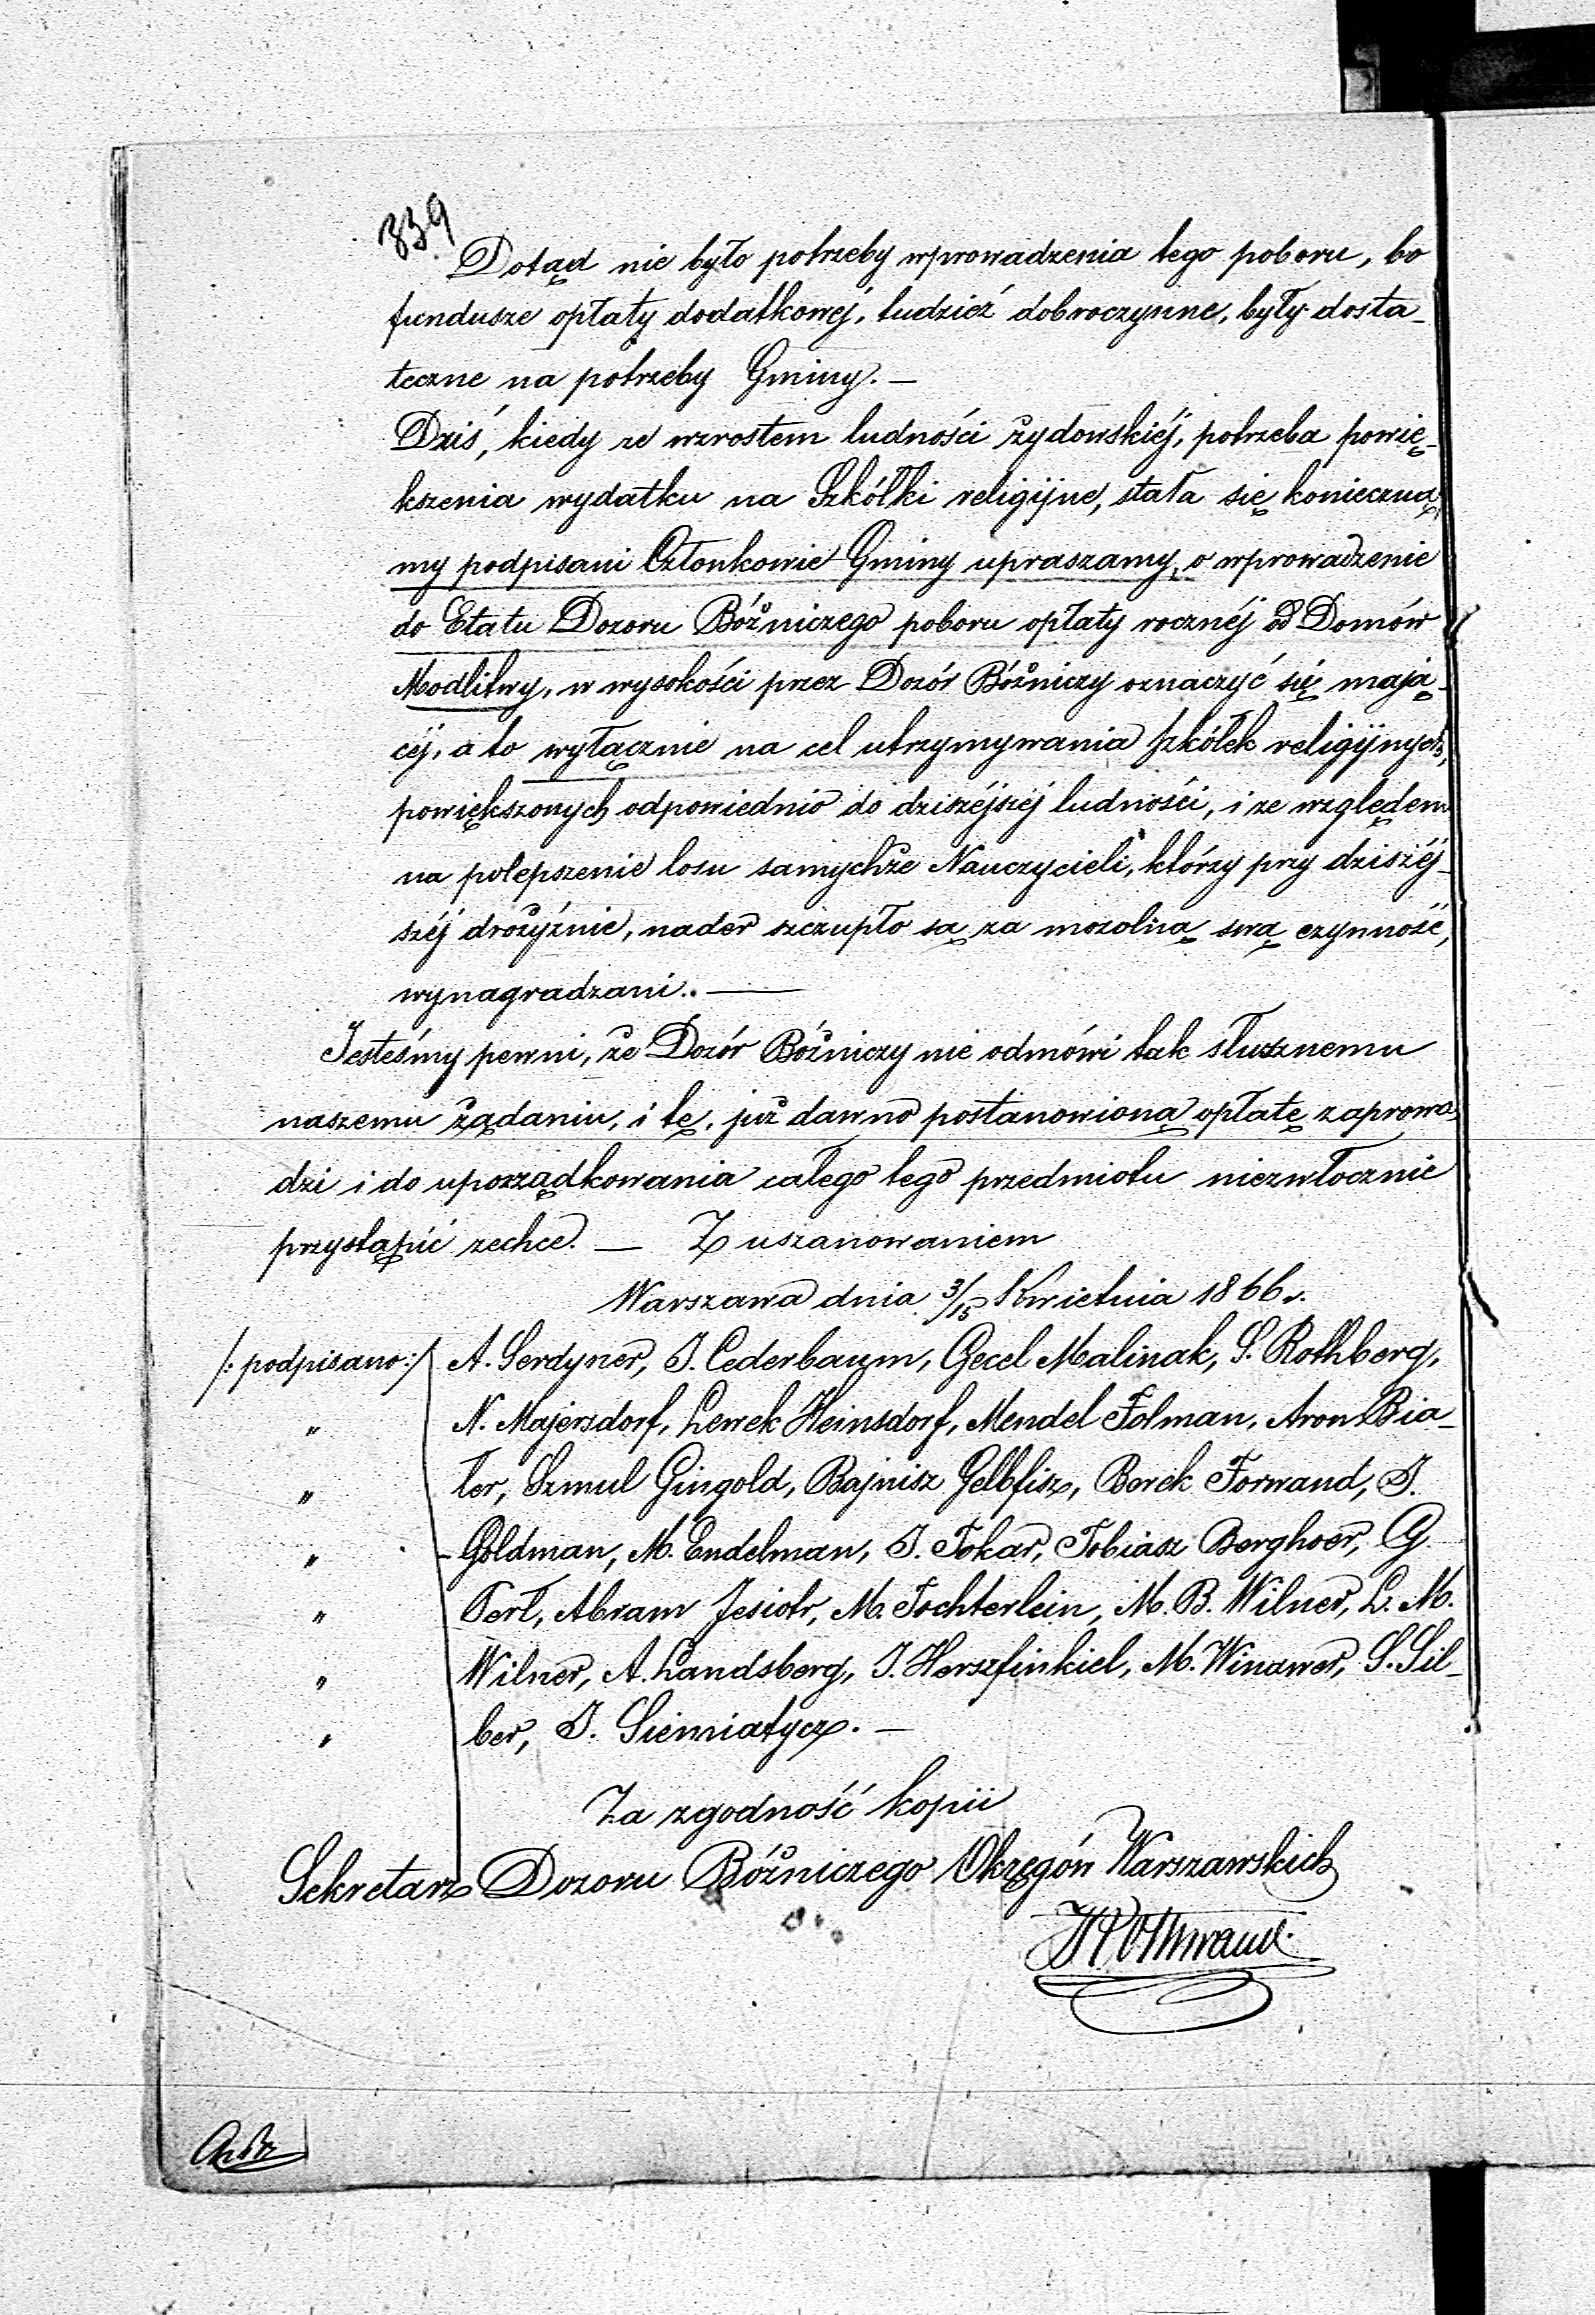 339
Dotąd nie było potrzeby wprowadzenia tego poboru, bo
fundusze opłaty dodatkowej, tudzież dobroczynne, były dosta-
teczne na potrzeby Gminy. —
Dziś, kiedy ze wzrostem ludności żydowskiéj, potrzeba powię-
kszenia wydatku na Szkółki religijne, stała się konieczną,
my podpisani Członkowie Gminy upraszamy, o wprowadzenie
do Etatu Dozoru Bóżniczego poboru opłaty rocznéj od Domów
Modlitwy, w wysokości przez Dozór Bóżniczy oznaczyć się mają-
céj, a to wyłącznie na cel utrzymywania szkółek religijnych,
powiększonych odpowiednio do dzisiéjszéj ludności, i ze względem
na polepszenie losu samychże Nauczycieli, którzy przy dzisiéj-
széj drożyźnie, nader szczupło są za mozolną swą czynność,
wynagradzani. —
Jesteśmy pewni, że Dozór Bóżniczy nie odmówi tak słusznemu
naszemu żądaniu, i tę, już dawno postanowioną opłatę zaprowa-
dzi i do uporządkowania całego tego przedmiotu niezwłocznie
przystąpić zechce. — Z uszanowaniem
Warszawa dnia 3/15 Kwietnia 1866 r.
/: podpisano :/ A. Serdyner, J. Cederbaum, Gecel Malinak, S. Rothberg,
" N. Majersdorf, Lewek Heinsdorf, Mendel Folman, Aron Bia-
" ler, Szmul Gingold, Bajnisz Gelbfisz, Berek Forwand, J.
" Goldman, M. Endelman, J. Tokar, Tobiasz Berghoer, G.
" Perl, Abram Jesiotr, M. Tochterlein, M. B. Wilner, L. M.
" Wilner, A. Landsberg, J. Herszfinkiel, M. Winawer, S. Sil-
" ber, J. Siemiatycz. —
Za zgodność kopii
Sekretarz Dozoru Bóżniczego Okręgów Warszawskich